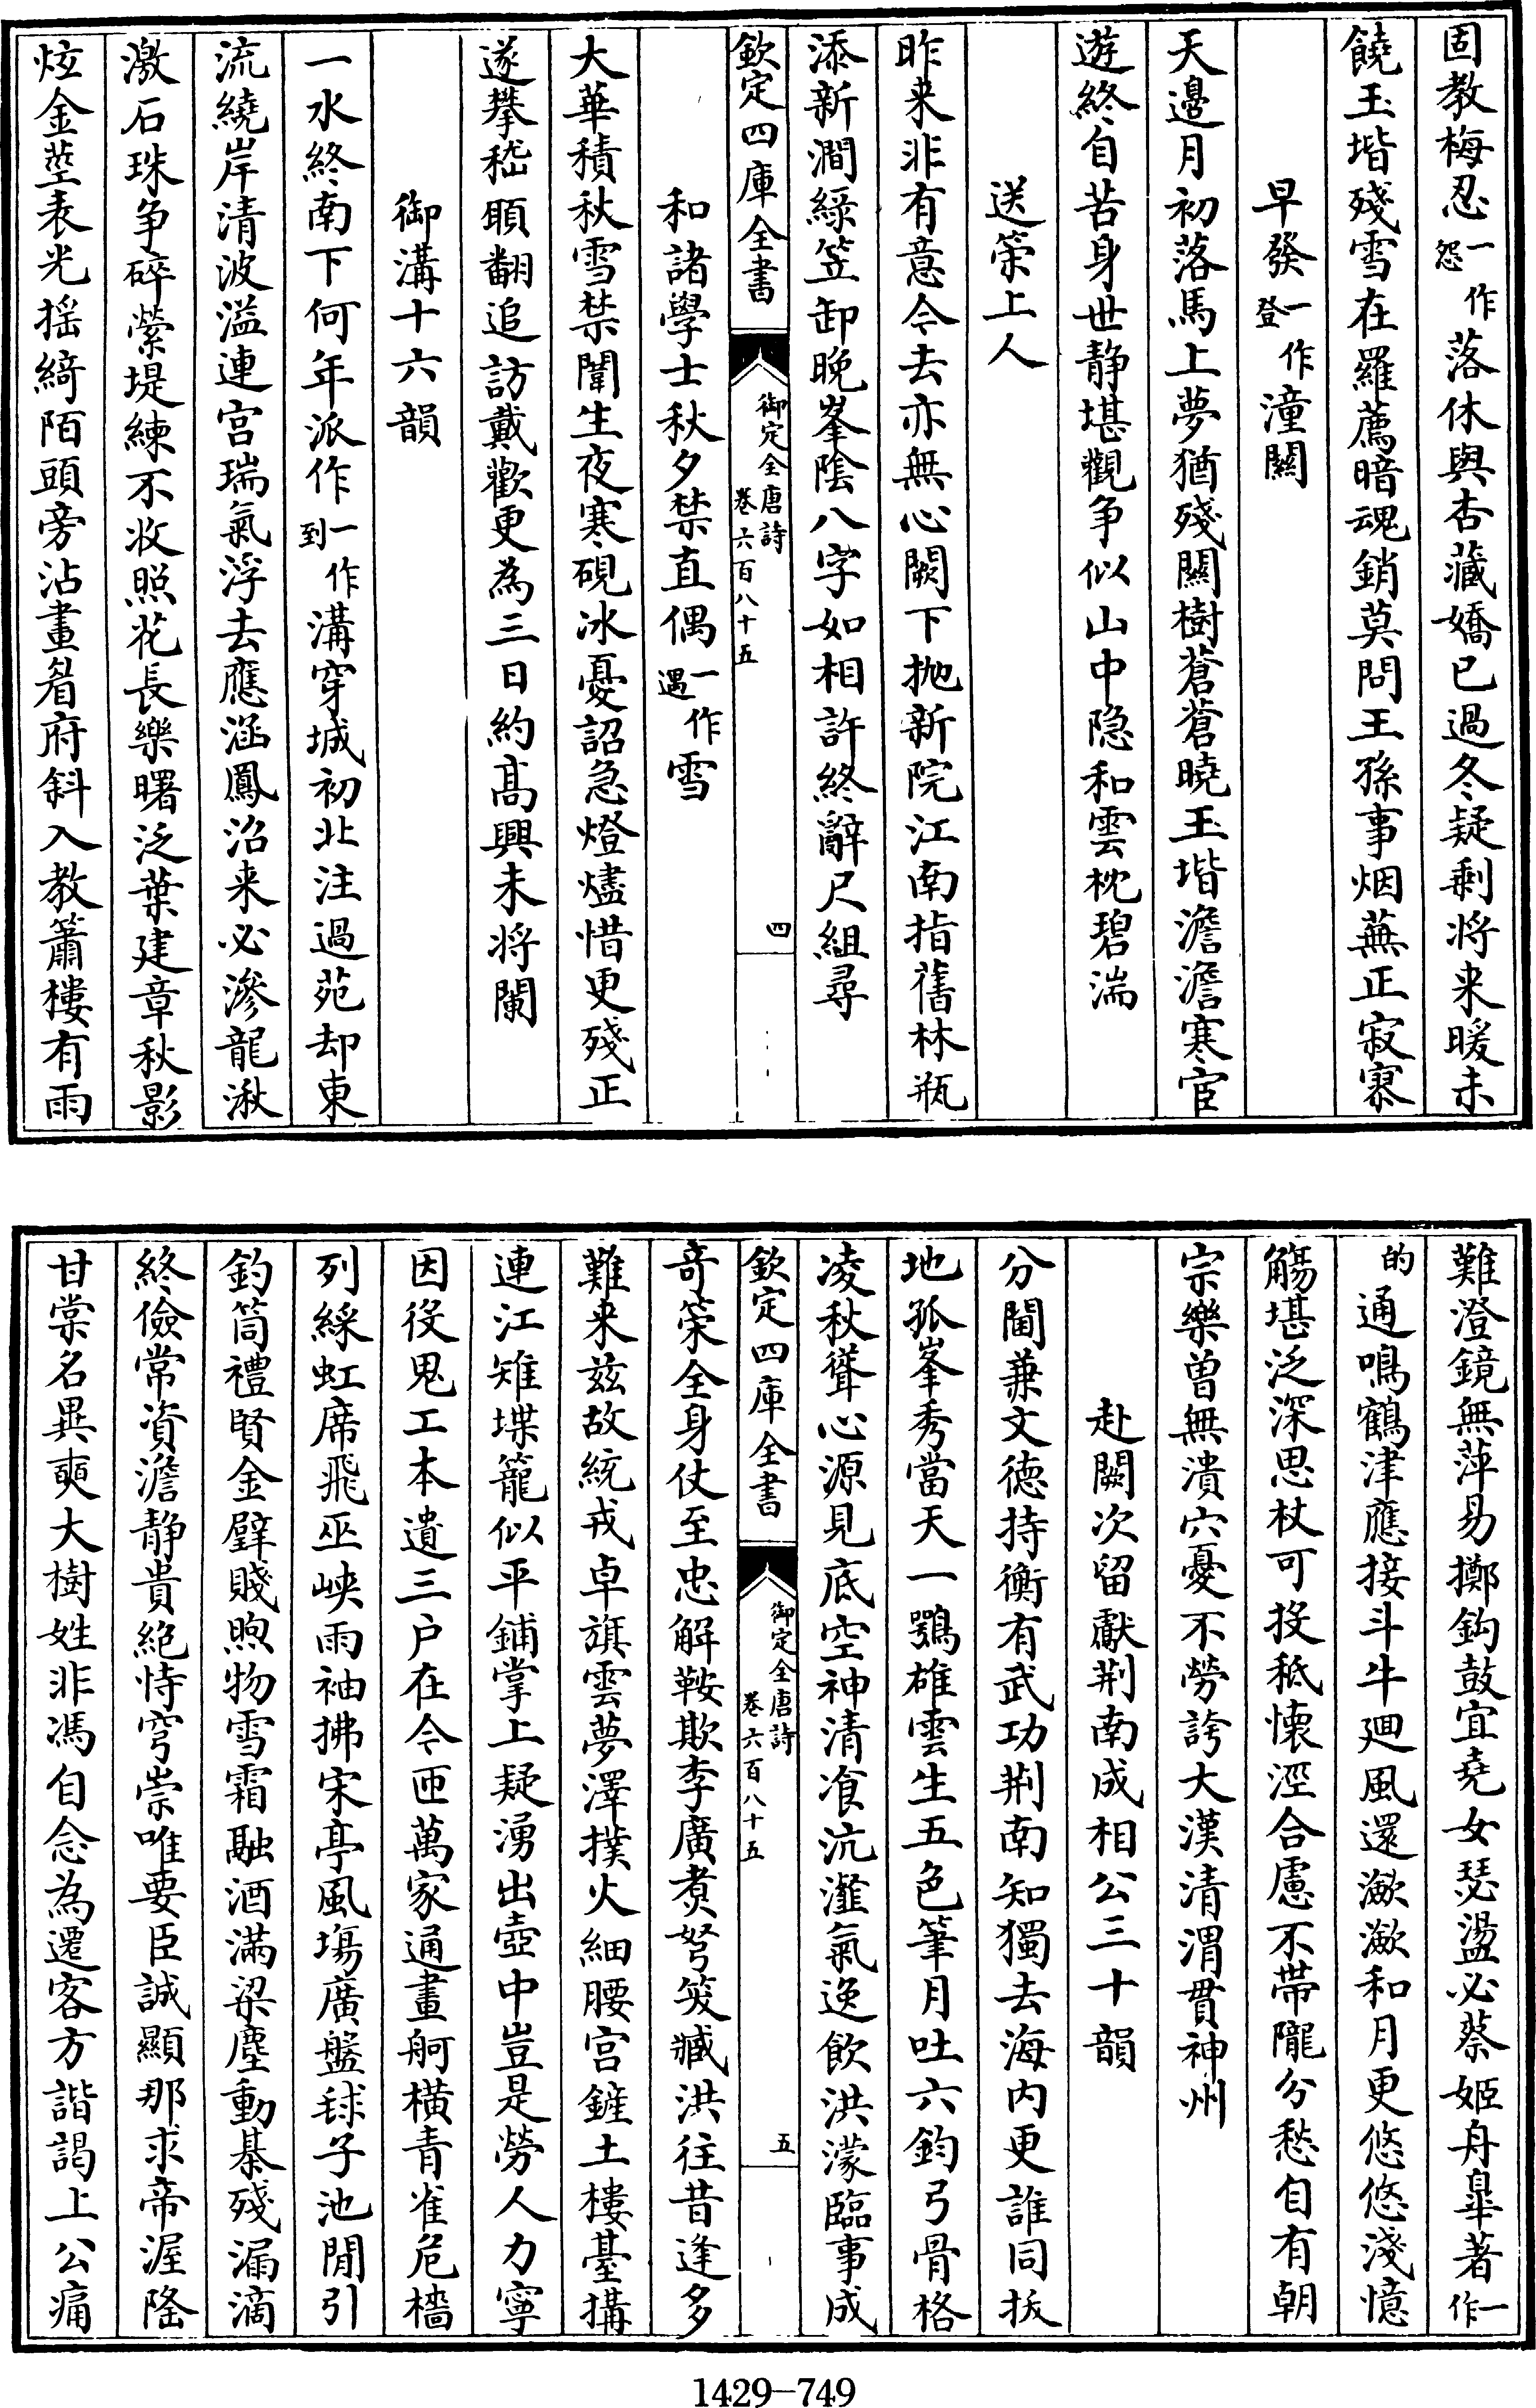 固教梅忍一作怨落休與杏藏嬌已過冬疑剩將来暖未
饒玉堦殘雪在羅薦暗魂銷莫問王孫事烟蕪正寂寥
早發一作登潼關
天邊月初落馬上夢猶殘關樹蒼蒼曉玉堦澹澹寒宦
遊終自苦身世静堪觀争似山中隐和雲枕碧湍
送策上人
昨来非有意今去亦無心闕下抛新院江南指舊林瓶
添新澗綠笠卸晚峯陰八字如相許終辭尺組尋
欽定四庫全書 御定全唐詩卷六百八十五 四
和諸學士秋夕禁直偶一作遇雪
大華積秋雪禁闈生夜寒硯冰憂詔急燈燼惜更殘正
遂攀嵇願翻追訪戴歡更為三日約髙興未将闌
御溝十六韻
一水終南下何年派作一作到溝穿城初北注過苑却東
流繞岸清波溢連宫瑞氣浮去應涵鳳沼来必滲龍湫
激石珠争碎縈堤練不收照花長樂曙泛葉建章秋影
炫金莖表光揺綺陌頭旁沾畫眉府斜入教簫樓有雨
難澄鏡無萍易擲鈎鼓宜堯女瑟盪必蔡姬舟皐著一作
的通鳴鶴津應接斗牛廻風還瀲瀲和月更悠悠淺憶
觴堪泛深思杖可投秖懐涇合慮不帶隴分愁自有朝
宗樂曾無潰穴憂不勞誇大漢清渭貫神州
赴闕次留獻荆南成相公三十韻
分閫兼文德持衡有武功荆南知獨去海内更誰同拔
地孤峯秀當天一鶚雄雲生五色筆月吐六鈞弓骨格
凌秋聳心源見底空神清飡沆瀣氣逸飲洪濛臨事成
欽定四庫全書 御定全唐詩卷六百八十五 五
奇策全身仗至忠解鞍欺李廣煑弩笑臧洪往昔逢多
難来兹故統戎卓旗雲夢澤撲火細腰宫鏟土樓臺搆
連江雉堞籠似平鋪掌上疑湧出壺中豈是勞人力寧
因役鬼工本遺三户在今匝萬家通畫舸横青雀危檣
列綵虹席飛巫峽雨袖拂宋亭風塲廣盤毬子池閒引
釣筒禮賢金璧賤煦物雪霜融酒滿梁塵動棊殘漏滴
終儉常資澹静貴絶恃穹崇唯要臣誠顯那求帝渥隆
甘棠名異奭大樹姓非馮自念為遷客方諧謁上公痛
1429-749